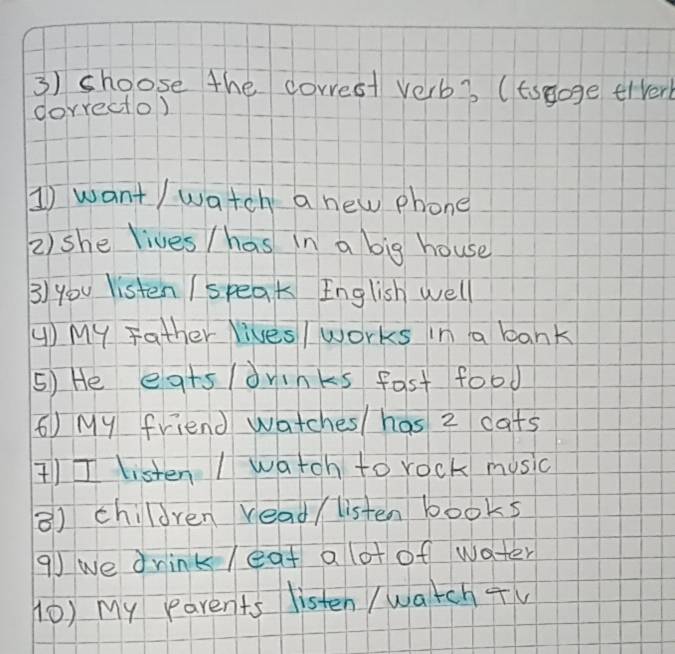 3) choose the correct verb? (Escoge el verb
correcto)
1) want / watch a new phone
2) she lives / has in a big house
3) you listen / speak English well
4) My Father lives / works in a bank
5) He eats / drinks fast food
6) My friend watches / has 2 cats
7) I listen / watch to rock music
8) children read / listen books
9) we drink / eat a lot of water
10) My parents listen / watch TV